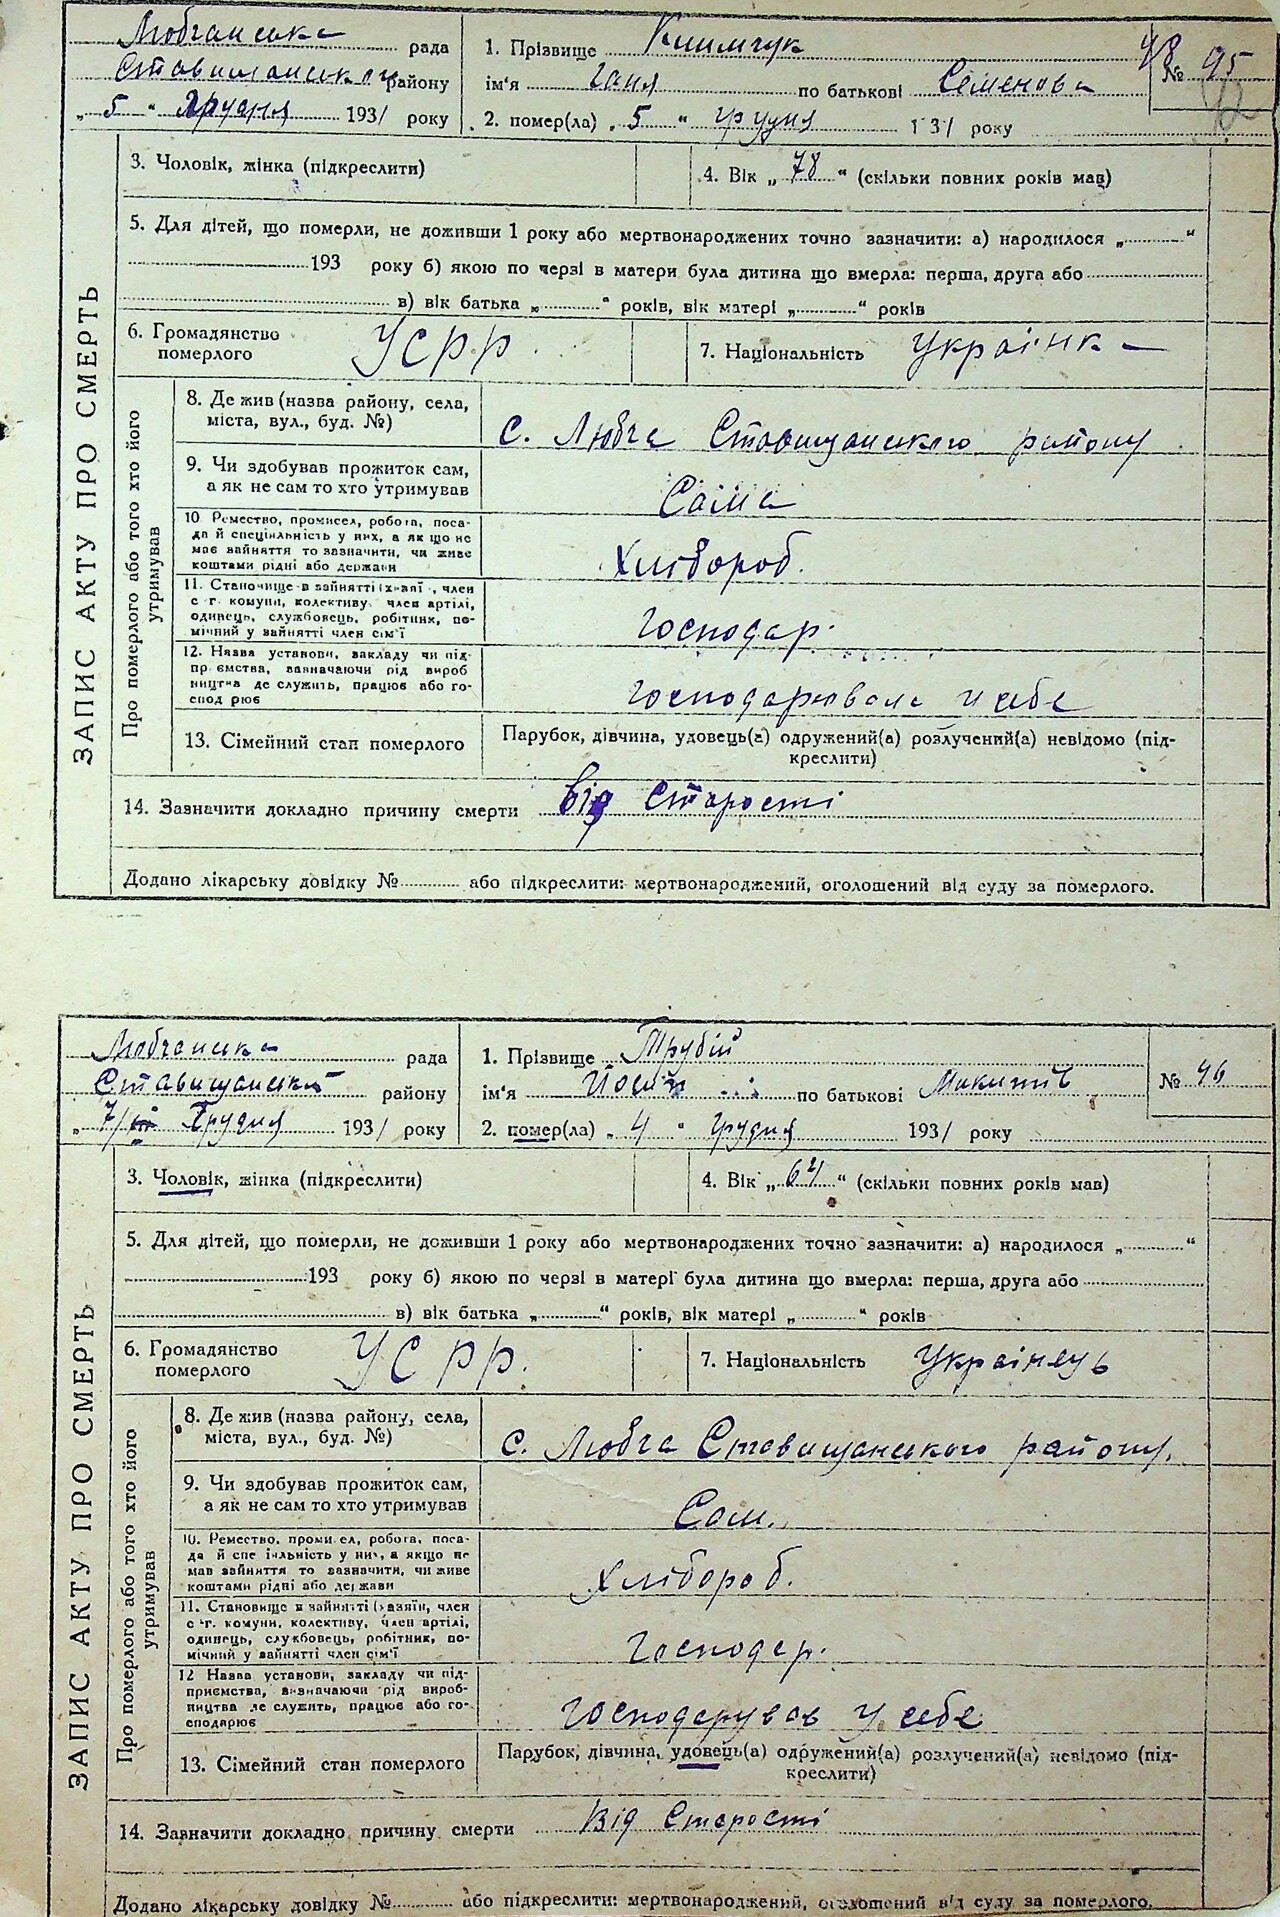 Любчанська рада
Ставищанського району
„ 5 " Грудня 1931 року
1. Прізвище Климчук
№ 95
ім'я Ганя по батькові Семенова
2. помер(ла) „ 5 " грудня 1 31 року
ЗАПИС АКТУ ПРО СМЕРТЬ
3. Чоловік, жінка (підкреслити)
4. Вік „ 78 " (скільки повних років мав)
5. Для дітей, що померли, не доживши 1 року або мертвонароджених точно зазначити: а) народилося „ "
193 року б) якою по черзі в матери була дитина що вмерла: перша, друга або
в) вік батька „ " років, вік матері „ " років
6. Громадянство померлого УСРР
7. Національність Українка
Про померлого або того хто його утримував
8. Де жив (назва району, села,
міста, вул., буд. №)
с. Любча Ставищанського району
9. Чи здобував прожиток сам,
а як не сам то хто утримував
Сама
10 Ремество, промисел, робота, поса-
да й спеціяльність у них, а якщо не
має зайняття то зазначити, чи живе
коштами рідні або держави
Хлібороб.
11. Становище в зайнятті (хазяї , член
с г. комуни, колективу, член артілі,
одинець, службовець, робітник, по-
мічний у зайнятті член сім'ї
господар.
12. Назва установи, закладу чи під-
пр ємства, зазначаючи рід вироб
ництва де служить, працює або го-
спод рює
господарювала у себе
13. Сімейний стан померлого
Парубок, дівчина, удовець(а) одружений(а) розлучений(а) невідомо (під-
креслити)
14. Зазначити докладно причину смерти від Старості
Додано лікарську довідку № або підкреслити: мертвонароджений, оголошений від суду за померлого.
Любчанська рада
Ставищанськ району
„ 7/ Грудня 1931 року
1. Прізвище Трубій
№ 96
ім'я Йосип по батькові Микитів
2. помер(ла) „ 4 " Грудня 1931 року
ЗАПИС АКТУ ПРО СМЕРТЬ
3. Чоловік, жінка (підкреслити)
4. Вік „ 64 " (скільки повних років мав)
5. Для дітей, що померли, не доживши 1 року або мертвонароджених точно зазначити: а) народилося „ "
193 року б) якою по черзі в матері була дитина що вмерла: перша, друга або
в) вік батька „ " років, вік матері „ " років
6. Громадянство померлого УСРР.
7. Національність Українець
Про померлого або того хто його утримував
8. Де жив (назва району, села,
міста, вул., буд. №)
с. Любча Ставищанського району.
9. Чи здобував прожиток сам,
а як не сам то хто утримував
Сам.
10. Ремество, проми ел, робота, поса-
да й спе іяльність у них, а якщо не
мав зайняття то зазначити, чи живе
коштами рідні або держави
Хлібороб.
11. Становище в зайнятті (хазяїн, член
с -г. комуни, колективу, член артілі,
одинець, службовець, робітник, по-
мічний у зайнятті член сім'ї
господар.
12 Назва установи, закладу чи під-
приємства, визначаючи рід вироб-
ництва де служить, працює або го-
сподарює
господарував у себе
13. Сімейний стан померлого
Парубок, дівчина, удовець(а) одружений(а) розлучений(а) невідомо (під-
креслити)
14. Зазначити докладно причину смерти Від Старості
Додано лікарську довідку № або підкреслити: мертвонароджений, оголошений від суду за померлого.